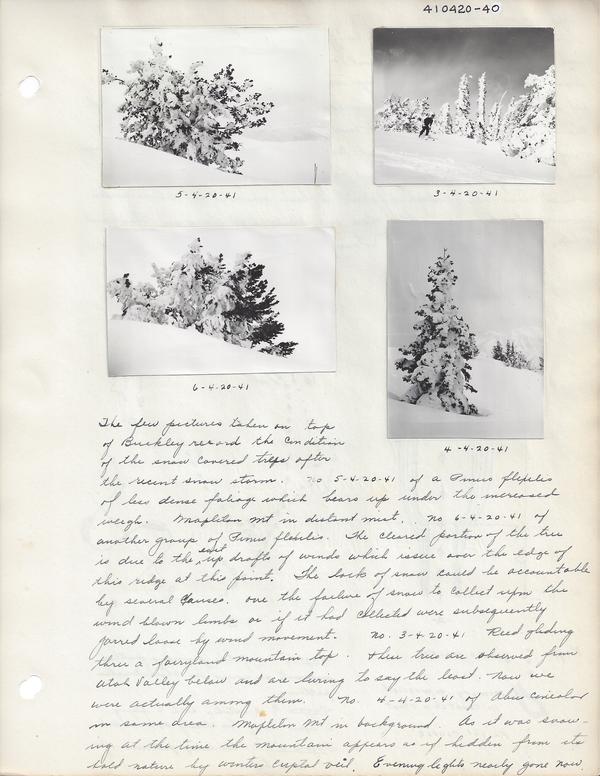 410420-40
5-4-20-41
3-4-20-41
6-4-20-41
4-4-20-41
The few pictures taken on top
of Buckley record the Condition
of the snow covered trees after
the recent snow storm. No 5-4-20-41 of a Pinus flexilis
of less dense foliage which bears up under the increased
weigh. Mapleton Mt in distant mist. No 6-4-20-41 of
another group of Pinus flexilis. The cleared portion of the tree
is due to the up drafts of winds which issue over the edge of
this ridge at this point. The lack of snow could be accountable
by several Causes. one the failure of snow to collect upon the
wind blown limbs or if it had collected were subsequently
jarred loose by wind movement. No. 3-4-20-41 Reed gliding
threu a fairyland mountain top. these trees are observed from
Utah Valley below and are luring to say the least. Now we
were actually among them. No. 4-4-20-41 of Abies concolor
in same area. Mapleton Mt in background. As it was snow-
ing at the time the mountain appears as if hidden from its
bold nature by winters veil. Evening lights nearly gone now